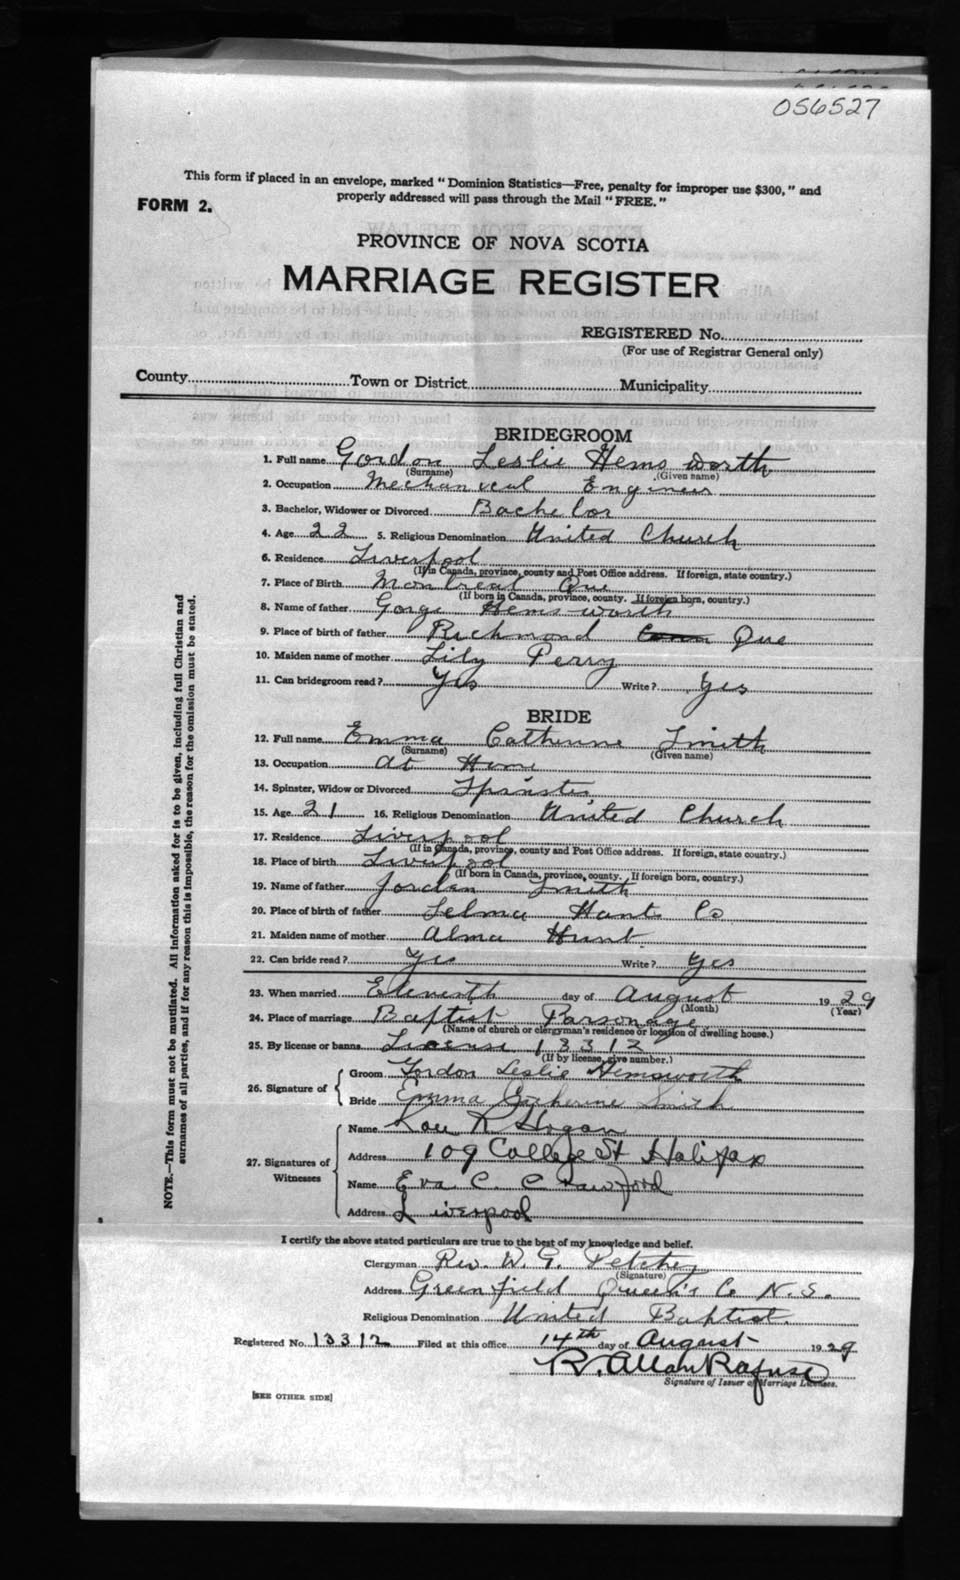 056527
This form if placed in an envelope, marked "Dominion Statistics—Free, penalty for improper use $300," and
properly addressed will pass through the Mail "FREE."
FORM 2.
PROVINCE OF NOVA SCOTIA
MARRIAGE REGISTER
REGISTERED No.
(For use of Registrar General only)
County Town or District Municipality
BRIDEGROOM
1. Full name Gordon Leslie Hemsworth
(Surname) (Given name)
2. Occupation Mechanical Engineer
3. Bachelor, Widower or Divorced Bachelor
4. Age 22 5. Religious Denomination United Church
6. Residence Liverpool
(If in Canada, province, county and Post Office address. If foreign, state country.)
7. Place of Birth Montreal Que
(If born in Canada, province, county. If foreign born, country.)
8. Name of father Gorge Hemsworth
9. Place of birth of father Richmond Que
10. Maiden name of mother Lily Perry
11. Can bridegroom read? Yes Write? Yes
BRIDE
12. Full name Emma Catherine Smith
(Surname) (Given name)
13. Occupation At Home
14. Spinster, Widow or Divorced Spinster
15. Age 21 16. Religious Denomination United Church
17. Residence Liverpool
(If in Canada, province, county and Post Office address. If foreign, state country.)
18. Place of birth Liverpool
(If born in Canada, province, county. If foreign born, country.)
19. Name of father Jordan Smith
20. Place of birth of father Selma Hants Co
21. Maiden name of mother Alma Hunt
22. Can bride read? Yes Write? Yes
23. When married Eleventh day of August 1929
(Month) (Year)
24. Place of marriage Baptist Parsonage
(Name of church or clergyman's residence or location of dwelling house.)
25. By license or banns License 13312
(If by license, give number.)
26. Signature of Groom Gordon Leslie Hemsworth
Bride Emma Catherine Smith
27. Signatures of Witnesses
Name Lou R Hogan
Address 109 College St Halifax
Name Eva C. Crawford
Address Liverpool
NOTE.—This form must not be mutilated. All information asked for is to be given, including full Christian and
surnames of all parties, and if for any reason this is impossible, the reason for the omission must be stated.
I certify the above stated particulars are true to the best of my knowledge and belief.
Clergyman Rev. W. G. Petchey
(Signature)
Address Greenfield Queen's Co N.S.
Religious Denomination United Baptist.
Registered No. 13312 Filed at this office 14th day of August 1929
R. Allan Rafuse
Signature of Issuer of Marriage Licenses.
[SEE OTHER SIDE]